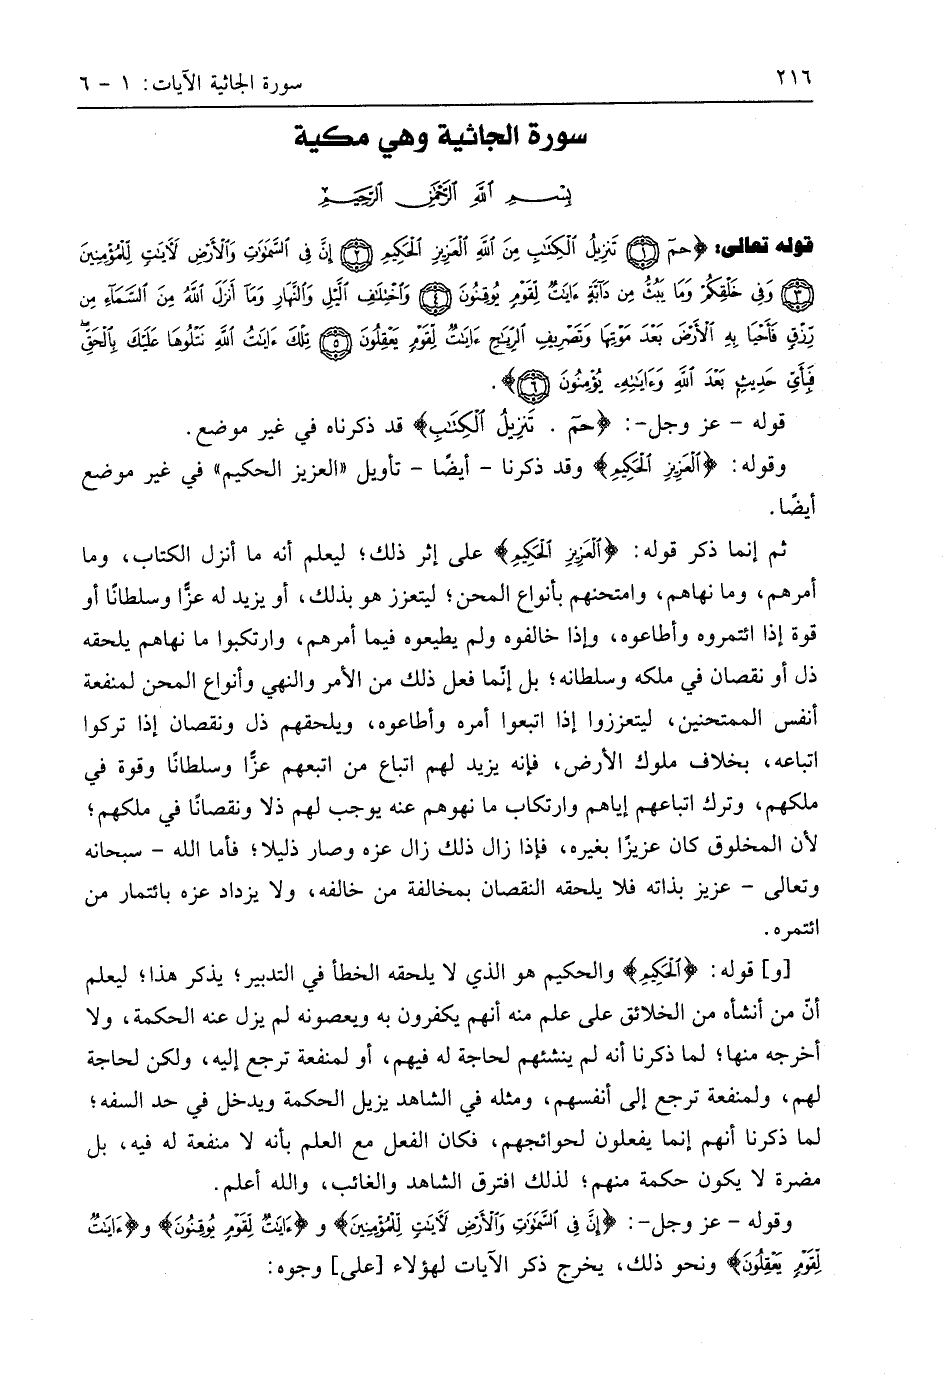 ٢١٦
سورة الجاثية الآيات: ١ - ٦
سورة الجاثية وهي مكية
بِسْمِ ٱللَّهِ ٱلرَّحْمَٰنِ ٱلرَّحِيمِ
قوله تعالى: ﴿حمٓ ١ تَنزِيلُ ٱلْكِتَٰبِ مِنَ ٱللَّهِ ٱلْعَزِيزِ ٱلْحَكِيمِ ٢ إِنَّ فِى ٱلسَّمَٰوَٰتِ وَٱلْأَرْضِ لَءَايَٰتٍ لِّلْمُؤْمِنِينَ
٣ وَفِى خَلْقِكُمْ وَمَا يَبُثُّ مِن دَآبَّةٍ ءَايَٰتٌ لِّقَوْمٍ يُوقِنُونَ ٤ وَٱخْتِلَٰفِ ٱلَّيْلِ وَٱلنَّهَارِ وَمَآ أَنزَلَ ٱللَّهُ مِنَ ٱلسَّمَآءِ مِن
رِّزْقٍ فَأَحْيَا بِهِ ٱلْأَرْضَ بَعْدَ مَوْتِهَا وَتَصْرِيفِ ٱلرِّيَٰحِ ءَايَٰتٌ لِّقَوْمٍ يَعْقِلُونَ ٥ تِلْكَ ءَايَٰتُ ٱللَّهِ نَتْلُوهَا عَلَيْكَ بِٱلْحَقِّۖ
فَبِأَىِّ حَدِيثٍۭ بَعْدَ ٱللَّهِ وَءَايَٰتِهِۦ يُؤْمِنُونَ ٦﴾.
قوله - عز وجل-: ﴿حمٓ . تَنزِيلُ ٱلْكِتَٰبِ﴾ قد ذكرناه في غير موضع.
وقوله: ﴿ٱلْعَزِيزِ ٱلْحَكِيمِ﴾ وقد ذكرنا - أيضًا - تأويل «العزيز الحكيم» في غير موضع
أيضًا.
ثم إنما ذكر قوله: ﴿ٱلْعَزِيزِ ٱلْحَكِيمِ﴾ على إثر ذلك؛ ليعلم أنه ما أنزل الكتاب، وما
أمرهم، وما نهاهم، وامتحنهم بأنواع المحن؛ ليتعزز هو بذلك، أو يزيد له عزًّا وسلطانًا أو
قوة إذا ائتمروه وأطاعوه، وإذا خالفوه ولم يطيعوه فيما أمرهم، وارتكبوا ما نهاهم يلحقه
ذل أو نقصان في ملكه وسلطانه؛ بل إنّما فعل ذلك من الأمر والنهي وأنواع المحن لمنفعة
أنفس الممتحنين، ليتعززوا إذا اتبعوا أمره وأطاعوه، ويلحقهم ذل ونقصان إذا تركوا
اتباعه، بخلاف ملوك الأرض، فإنه يزيد لهم اتباع من اتبعهم عزًّا وسلطانًا وقوة في
ملكهم، وترك اتباعهم إياهم وارتكاب ما نهوهم عنه يوجب لهم ذلا ونقصانًا في ملكهم؛
لأن المخلوق كان عزيزًا بغيره، فإذا زال ذلك زال عزه وصار ذليلا؛ فأما الله - سبحانه
وتعالى - عزيز بذاته فلا يلحقه النقصان بمخالفة من خالفه، ولا يزداد عزه بائتمار من
ائتمره.
[و] قوله: ﴿ٱلْحَكِيمِ﴾ والحكيم هو الذي لا يلحقه الخطأ في التدبير؛ يذكر هذا؛ ليعلم
أنّ من أنشأه من الخلائق على علم منه أنهم يكفرون به ويعصونه لم يزل عنه الحكمة، ولا
أخرجه منها؛ لما ذكرنا أنه لم ينشئهم لحاجة له فيهم، أو لمنفعة ترجع إليه، ولكن لحاجة
لهم، ولمنفعة ترجع إلى أنفسهم، ومثله في الشاهد يزيل الحكمة ويدخل في حد السفه؛
لما ذكرنا أنهم إنما يفعلون لحوائجهم، فكان الفعل مع العلم بأنه لا منفعة له فيه، بل
مضرة لا يكون حكمة منهم؛ لذلك افترق الشاهد والغائب، والله أعلم.
وقوله - عز وجل-: ﴿إِنَّ فِى ٱلسَّمَٰوَٰتِ وَٱلْأَرْضِ لَءَايَٰتٍ لِّلْمُؤْمِنِينَ﴾ و ﴿ءَايَٰتٌ لِّقَوْمٍ يُوقِنُونَ﴾ و﴿ءَايَٰتٌ
لِّقَوْمٍ يَعْقِلُونَ﴾ ونحو ذلك، يخرج ذكر الآيات لهؤلاء [على] وجوه: